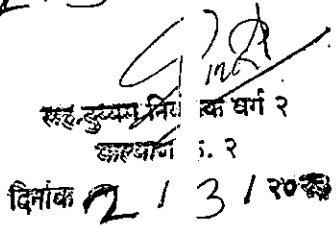 सह. दुय्यम निबंधक वर्ग २
कल्याण क्र. २
दिनांक 2 / 3 / २०